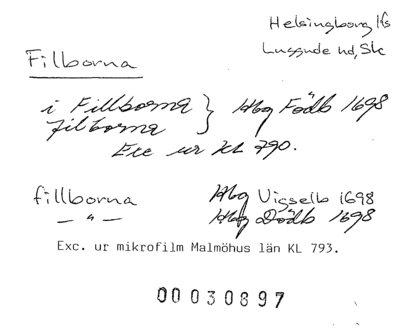 Helsingborg lfs
Luggude hd, Sk
Fillborna
i Fillborna } Hbg Födb 1698
filborna
Exc ur KL 790.
fillborna Hbg Vigselb 1698
— " — Hbg Dödb 1698
Exc. ur mikrofilm Malmöhus län KL 793.
00030897